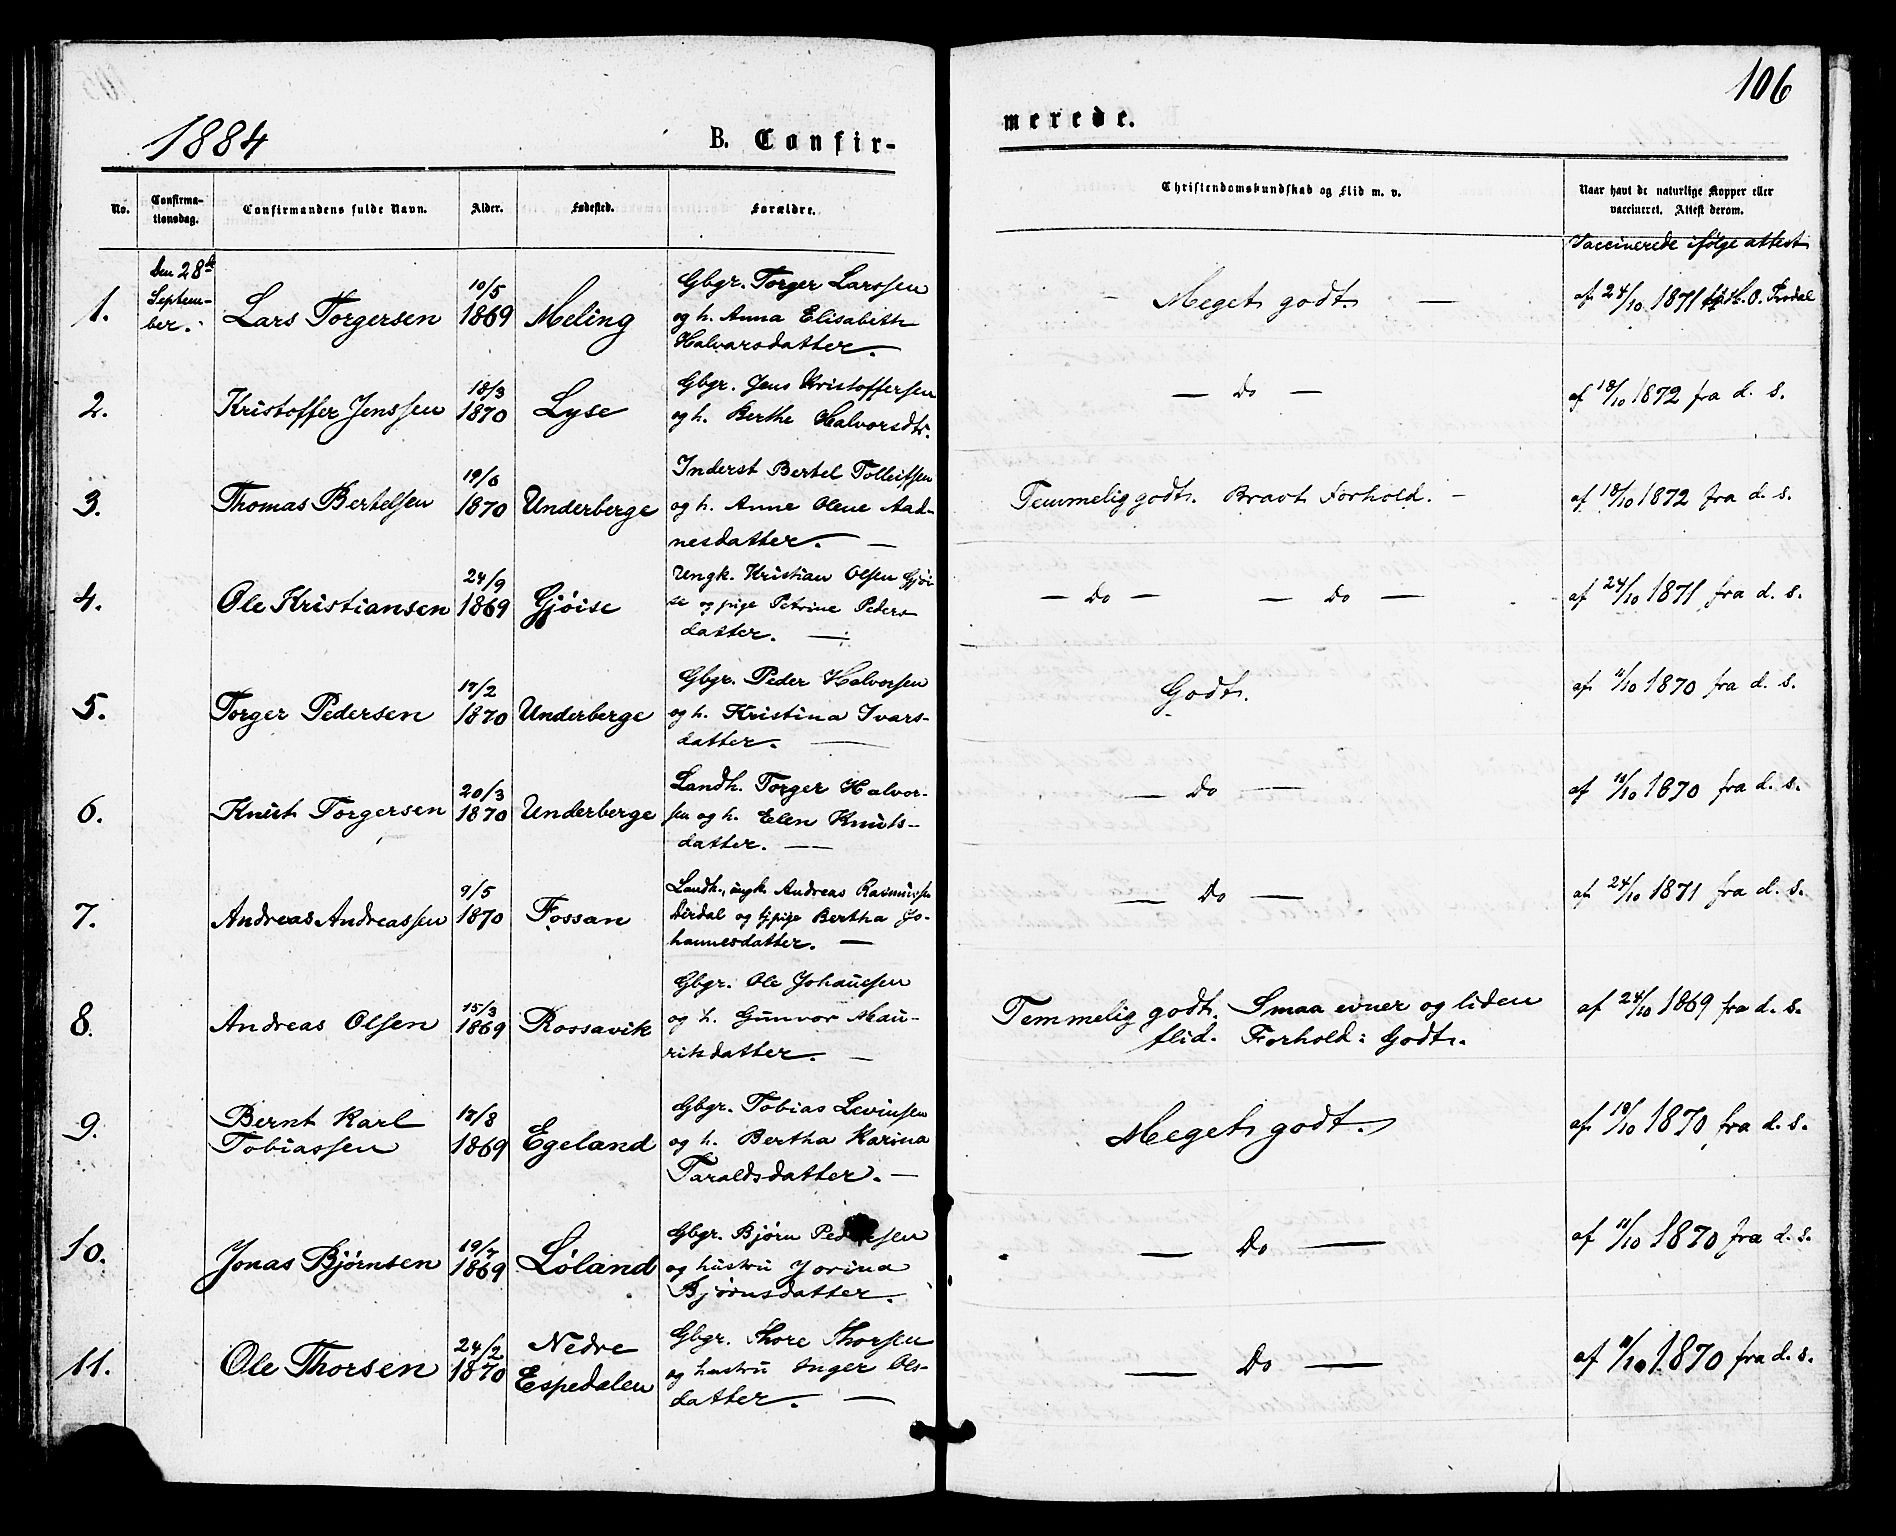 106
1884
B. Confir-
merede.
No.
Confirma-
tionsdag.
Confirmandens fulde Navn.
Alder.
Fødested.
Forældre.
Christendomskundskab og Flid m. v.
Naar havt de naturlige Kopper eller
vaccineret. Attest derom.
Vaccinerede ifølge attest
Den 28de
Septem-
ber.
1.
Lars Torgersen
10/5
1869
Meling
Gbgr. Torger Larssen
og h. Anna Elisabeth
Halvarsdatter. —
Meget godt. —
af 24/10 1871
2.
Kristoffer Jenssen
18/3
1870
Lyse
Gbgr. Jens Kristoffersen
og h. Berthe Halvorsdtr.
— Do —
af 18/10 1872 fra d. s.
3.
Thomas Bertelsen
19/6
1870
Underberge
Inderst Bertel Tolleitsen
og h. Anne Olene Aad-
nesdatter. —
Temmelig godt. Bravt Forhold. —
af 18/10 1872 fra d. s.
4.
Ole Kristiansen
24/9
1869
Gjøise
Ungk. Kristian Olsen Gjøi-
se og pige Petrine Peders
datter. —
— Do — — Do —
af 24/10 1871 fra d. s.
5.
Torger Pedersen
17/2
1870
Underberge
Gbgr. Peder Halvorsen
og h. Kristina Ivars-
datter. —
Godt.
af 11/10 1870 fra d. s.
6.
Knut Torgersen
20/3
1870
Underberge
Landh. Torger Halvor-
sen og h. Elen Knuts-
datter. —
— Do —
af 11/10 1870 fra d. s.
7.
Andreas Andreassen
9/5
1870
Fossan
Landh., ungk. Andreas Rasmussen
Dirdal og tjpige Bertha Jo-
hannesdatter. —
— Do —
af 24/10 1871 fra d. s.
8.
Andreas Olsen
15/3
1869
Rossavik
Gbgr. Ole Johannesen
og h. Gunvor Mau-
ritsdatter. —
Temmelig godt. Smaa evner og liden
flid. Forhold: Godt.
af 24/10 1869 fra d. s.
9.
Bernt Karl
Tobiassen
17/8
1869
Egeland
Gbgr. Tobias Levinsen
og h. Bertha Karina
Taraldsdatter. —
Meget godt.
af 10/10 1870 fra d. s.
10.
Jonas Bjørnsen
19/7
1869
Løland
Gbgr. Bjørn Pedersen
og hustru Jorina
Bjørnsdatter.
— Do —
af 11/10 1870 fra d. s.
11.
Ole Thorsen
24/2
1870
Nedre
Espedalen
Gbgr. Thore Thorsen
og hustru Inger Ols-
datter. —
— Do —
af 11/10 1870 fra d. s.